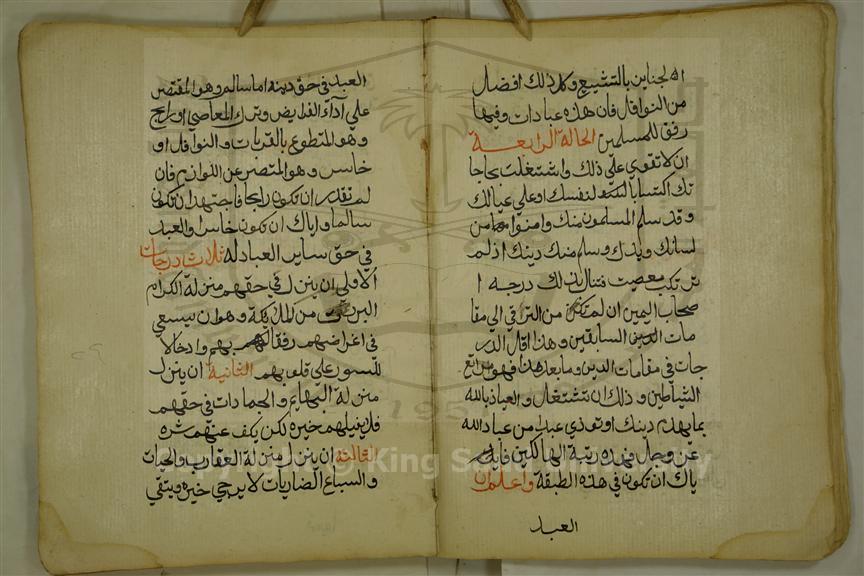 الجنايز بالتشييع وكل ذلك افضل
من النوافل فان هذه عبادات وفيها
رفق للمسلمين الحالة الرابعة
ان لا تقوي علي ذلك واشتغلت بحاجا
تك اكتسابا لنفسك او علي عيالك
وقد سلم المسلمون منك وامنوا من
لسانك ويدك وسلم منك دينك اذ لم
ترتكب معصية فتنال بذلك درجة ا
صحاب اليمين ان لم تكن من الترقي الي مقا
مات السابقين وهذا اقل الدر
جات في مقامات الدين وما بعد هذا فهو مراتع
الشياطين وذلك ان تشتغل والعياذ بالله
بما يهدم دينك او توذي عبدا من عباد الله
عز وجل فهذه رتبة الهالكين فايا
ياك ان تكون في هذه الطبقة واعلم ان
العبد
العبد في حق دينه اما سالم وهو المقتصر
علي آداء الفرايض وترك المعاصي او رابح
وهو المتطوع بالقربات والنوافل او
خاسر وهو المقصر عن اللوازم فان
لم تقدر ان تكون رابحا فاجتهد ان تكون
سالما واياك ان تكون خاسرا والعبد
في حق ساير العباد له ثلاث درجات
الاولي ان ينزل في حقهم منزلة الكرام
البررة من الملايكة وهو ان يسعي
في اغراضهم رفقا بهم وادخالا
للسرور علي قلوبهم الثانية ان ينزل
منزلة البهايم والجمادات في حقهم
فلا ينيلهم خيره لكن يكف عنهم شره
الثالثة ان ينزل منزلة العقارب والحيات
والسباع الضاريات لا يرجي خيره ويتقي
Copyright © King Saud University
1957